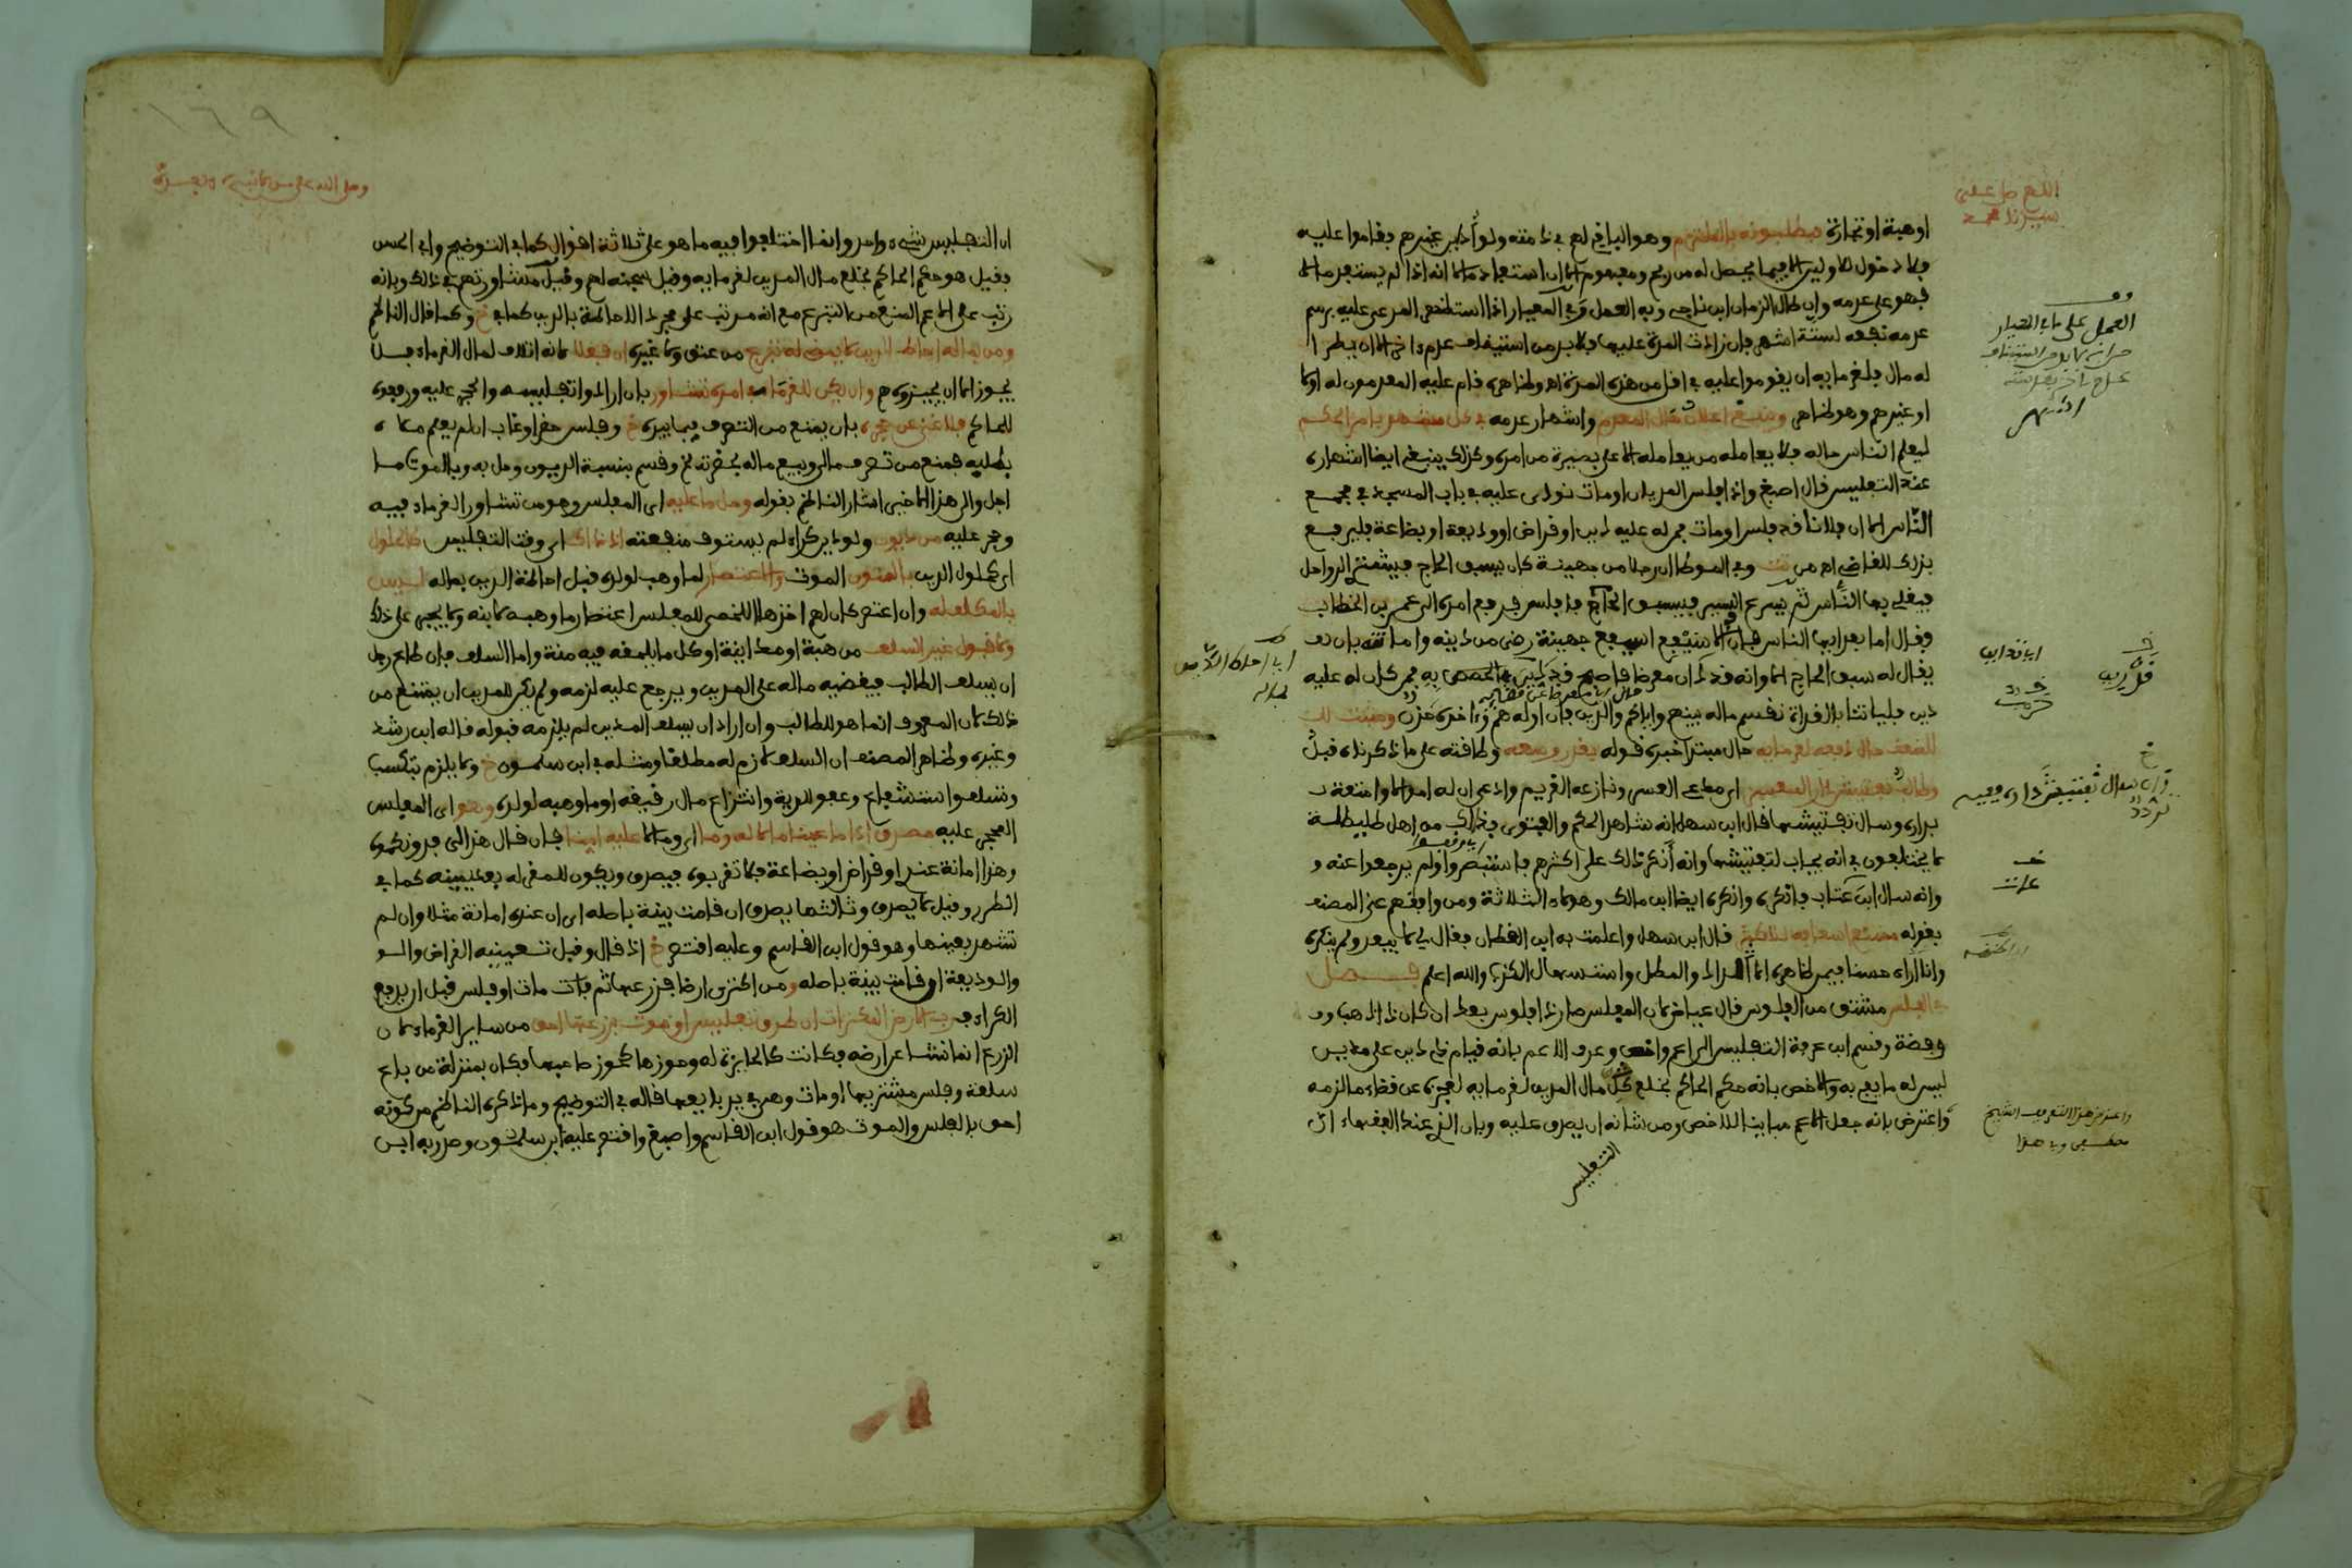 اللهم صل على
سيدنا محمد
او هبة او تجارة فيطلبونه بالملتزم وهو الباقي لهم في ذمته ولو اداين غيرهم فقاموا عليه
فلا دخول للاولين الا فيما يحصل له من ربح ومفهوم الا ان استفاد مالا انه اذا لم يستفد مالا
فهو على عدمه وان طال الزمان ابن ناجي وبه العمل وفي المعيار اذا استظهر المدعى عليه برسم
عدمه نفعه لستة اشهر فان زادت المدة عليها فلا بد من استيناف عدم اخر الا ان يطرا
له مال فلغرمايه ان يقوموا عليه في اقل من هذه المدة اه وظاهره قام عليه المعدمون له اولا
او غيرهم وهو ظاهر وينبغي اعلان حال المعدم واشهار عدمه في كل مشهد بامر الحاكم
ليعلم الناس حاله فلا يعامله من يعامله الا على بصيرة من امره وكذلك ينبغي ايضا اشهاره
عند التفليس قال اصبغ واذا فلس المديان او مات نودي عليه في باب المسجد في مجمع
الناس الا ان فلانا قد فلس او مات فمن له عليه دين او قراض او وديعة او بضاعة فليرفع
ذلك للقاضي اه من وفي الموطا ان رجلا من جهينة كان يسبق الحاج فيشتري الرواحل
فيغلي بها الناس ثم يسرع السير فيسبق الحاج فافلس فرفع امره الى عمر بن الخطاب
فقال اما بعد ايها الناس فان الاسيفع اسيفع جهينة رضي من دينه وامانته بان
يقال له سبق الحاج الا وانه قد ادان معرضا فاصبح قد رين به فمن كان له عليه
دين فلياتنا بالغداة نقسم ماله بينهم واياكم والدين فان اوله هم واخره حزن ومثبت
للضعف حال دفعه لغرمايه حال مبتدا خبره قوله بقدر وسعه وطاقته على ما ذكرناه قبل
وطالب تفتيش دار المعسر اي مدعي العسر ونازعه الغريم وادعى ان له اموالا وامتعة
بداره وسال تفتيشها قال ابن سهل انه شاهد الحكم والفتوى بذلك من اهل طليطلة
لا يختلفون في انه يجاب لتفتيشها وانه انكر ذلك على اكثرهم فاستبصروا ولم يرجعوا عنه
وانه سال ابن عتاب فانكره وانكره ايضا ابن مالك وهولاء الثلاثة ومن وافقهم عنى المصنف
بقوله ممتنع اسعافه للاكثر قال ابن سهل واعلمت به ابن القطان فقال لي ما يبعد ولم ينكره
وانا اراه حسنا فيمن ظاهره الالداد والمطل واستسهال الكذب والله اعلم فصل
الفلس مشتق من الفلوس قال عياض كان المفلس صار ذا فلوس بعد ان كان ذا ذهب
وفضة وقسم ابن عرفة التفليس الى اعم واخص وعرف الاعم بانه قيام ذي دين على مدين
ليس له ما يفي به والاخص بانه حكم الحاكم بخلع كل مال المدين لغرمايه لعجزه عن قضاء ما لزمه
واعترض بانه جعل الاعم مباينا للاخص ومن شانه ان يصدق عليه وبان الذي عند الفقهاء ان
التفليس
العمل على ما في المعيار
واعترض هذا التعريف الشيخ
١٦٩
ان التفليس شيء واحد وانما اختلفوا فيه ما هو على ثلاثة اقوال كما في التوضيح وابي الحسن
فقيل هو حكم الحاكم بخلع مال المدين لغرمايه وقيل سجنه لهم وقيل مشاورتهم في ذلك وبانه
رتب على الاعم المنع من التبرع مع انه مرتب على مجرد الاحاطة بالدين كما في خ وكما قال الناظم
ومن بماله احاط الدين لا يمضي له تبرع من عتق ولا غيره ان فعلا لانه اتلاف لمال الغرماء فلا
يجوز الا ان يجيزوه هم وان يكن للغرما في امره تشاور بان ارادوا تفليسه والحجر عليه ورفعوه
للحاكم فلا غنى عن حجره بان يمنع من التصرف فيما بيده خ وفلس حضر او غاب ان لم يعلم ملاءه
بطلبه فمنع من تصرف مالي وبيع ماله بحضرته خ وقسم بنسبة الديون وحل به وبالموت ما
اجل والى هذا الاخير اشار الناظم بقوله وحل ما عليه اي المفلس وهو من تشاور الغرماء فيه
وحجر عليه من ديون ولو دين كراء لم يستوف منفعته اذ ذاك اي وقت التفليس كالحلول
اي كحلول الدين بالمنون الموت والاعتصار لما وهب لولده قبل احاطة الدين بماله ليس
بالمكلف له وان اعتصر كان لهم اخذه اللخمي للمفلس اعتصار ما وهبه لابنه ولا يجبر على ذلك
ولا قبول غير السلف من هبة او صداينة او كل ما يلحقه فيه منة واما السلف فان طاع رجل
ان يسلف الطالب فيقضيه ماله على المدين ويرجع عليه لزمه ولم يكن للمدين ان يمتنع من
ذلك لان المعروف انما هو للطالب وان اراد ان يسلف المدين لم يلزمه قبوله قاله ابن رشد
وغيره وظاهر المصنف ان السلف لازم له مطلقا ومثله في ابن سلمون خ ولا يلزم بتكسب
وتسلف واستشفاع وعفو للدية وانتزاع مال رقيقه او ما وهبه لولده وهو اي المفلس
المحجر عليه مصدق اذا ما عينا مالا له وما اي ومالا عليه ايضا فان قال هذا الي
وهذا امانة عندي او قراض او بضاعة فلا تقربوه فيصدق ويكون للمقر له بعد يمينه كما في
الطرر وقيل لا يصدق وثالثها يصدق ان قامت بينة باصله اي ان عنده امانة مثلا وان لم
تشهد بعينها وهو قول ابن القاسم وعليه اقتصر خ اذ قال وقبل تعيينه القراض
والوديعة ان قامت بينة باصله ومن اكترى ارضا فزرعها ثم مات او فلس قبل ان يدفع
الكراء فرب الارض المكتراة ان طرق تفليس او موت بزرعها احق من ساير الغرماء لان
الزرع انما نشا عن ارضه فكانت كالحائزة له وحوزها كحوز صاحبها فكان بمنزلة من باع
سلعة وفلس مشتريها او مات وهي بيد بايعها قاله في التوضيح وما ذكره الناظم من كونه
احق بالفلس والموت هو قول ابن القاسم واصبغ واقتصر عليه ابن سلمون وصدر به ابن